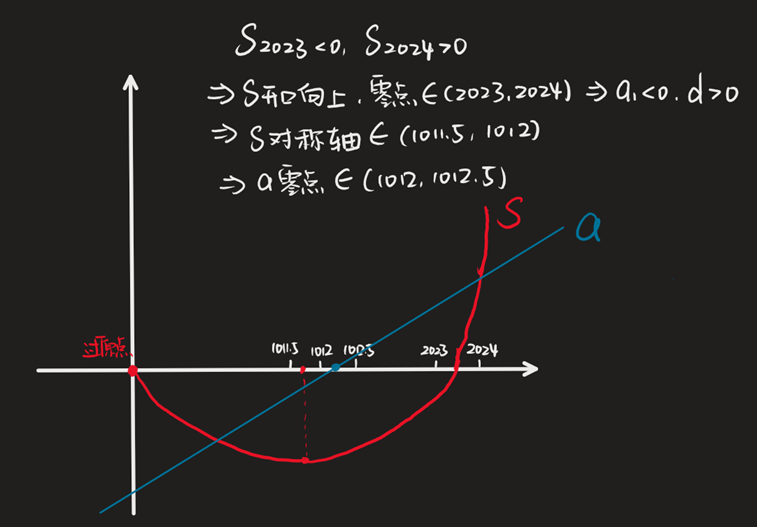 S2023<0, S2024>0
⇒S开口向上,零点∈(2023,2024) ⇒ a1<0,d>0
⇒ S对称轴∈(1011.5,1012)
⇒ a零点∈(1012,1012.5)
S
a
过原点
1011.5 1012 1012.5 2023 2024